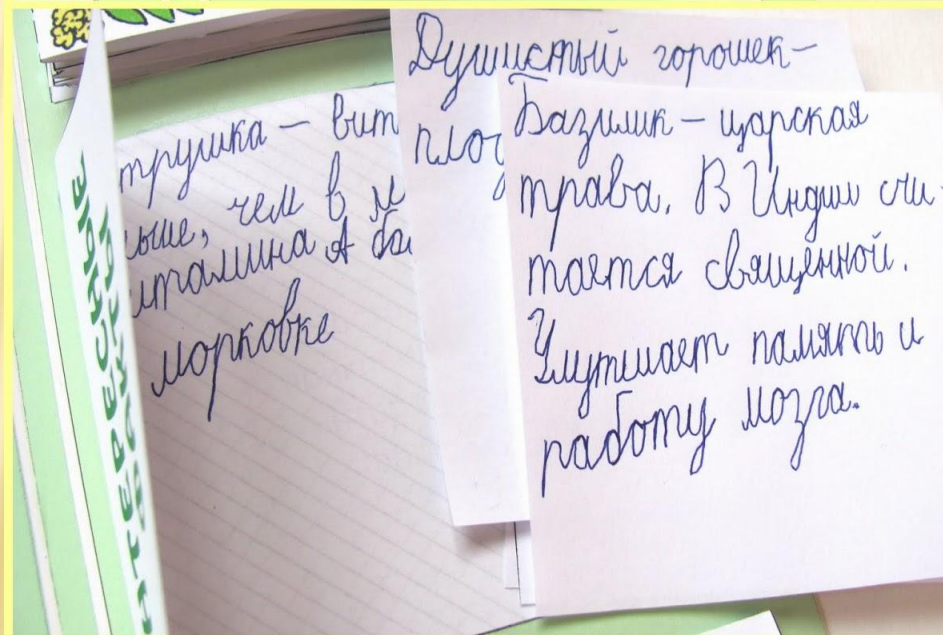 трушка – вит
ьше, чем в м
итамина А бо
морковке
Душистый горошек –
плод
Базилик – царская
трава. В Индии счи-
тается священной.
Улутшает память и
работу мозга.